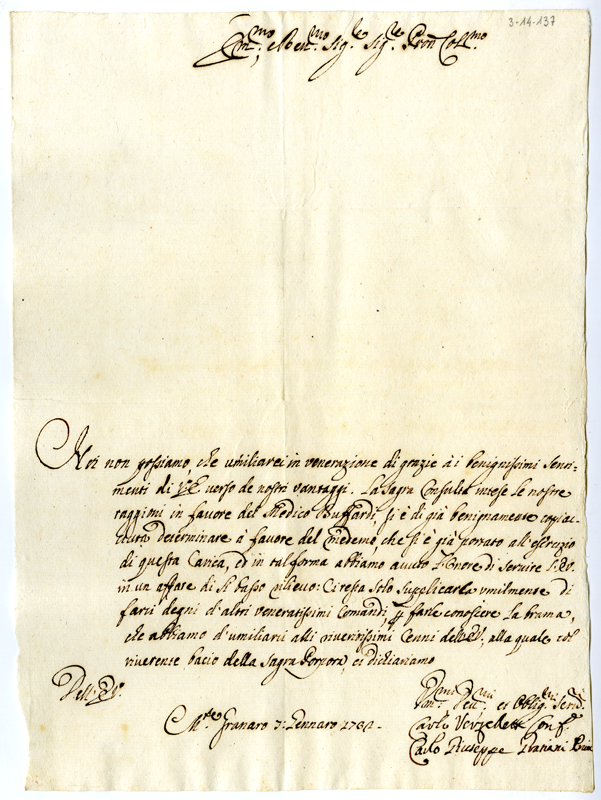 3-14-137
Em.mo e Rev.mo Sig.re Sig.re Pron Col.mo
Noi non possiamo, che umiliarci in venerazione di grazie à i benignissimi senti=
menti di V.E. verso de nostri vantaggi. La Sagra Consulta intese le nostre
raggioni in favore del Medico Buffardi, si è di già benignamente
determinare à favore del medemo, che si è già portato all'esercizio
di questa Carica, ed in tal forma abbiamo avuto l'Onore di Servire V.E.
in un affare di sì basso rilievo: Ci resta solo supplicarla umilmente di
farci degni d'altri veneratissimi Comandi, farle conoscere la brama,
che abbiamo d'umiliarci alli riveritissimi Cenni dell'E.V., alla quale col
riverente bacio della Sagra Porpora, ci dichiariamo
Dell'E.V.
M.te Granaro 7: Gennaro
Um.mi Dev.mi et Oblig.mi Serv.
Carlo Conf.
Carlo Giuseppe